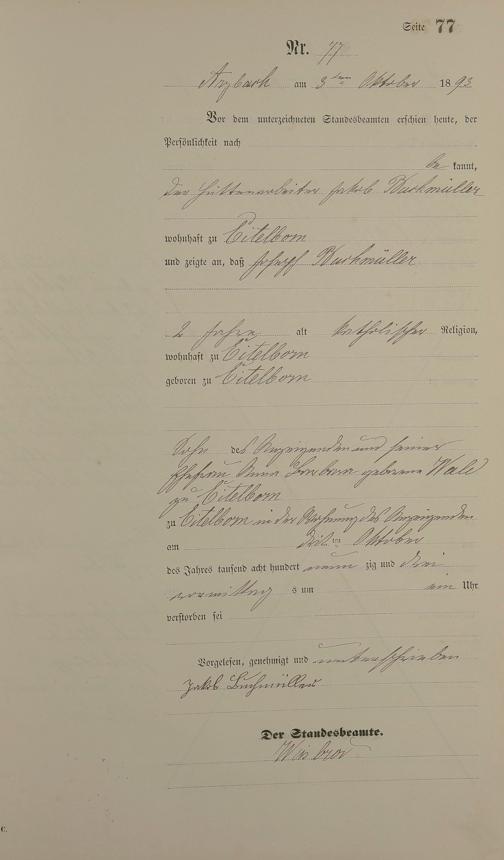 Seite 77
Nr. 77
Arzbach am 3ten Oktober 1893
Vor dem unterzeichneten Standesbeamten erschien heute, der
Persönlichkeit nach
be kannt,
der Hüttenarbeiter Jakob Buchmüller
wohnhaft zu Eitelborn
und zeigte an, daß Joseph Buchmüller
2 Jahre alt katholischer Religion,
wohnhaft zu Eitelborn
geboren zu Eitelborn
Sohn des Anzeigenden und seiner
Ehefrau Anna Barbara geborene
zu Eitelborn
zu Eitelborn in der Wohnung des Anzeigenden
am Oktober
des Jahres tausend acht hundert neun zig und drei
vormittag s um ein Uhr
verstorben sei
Vorgelesen, genehmigt und unterschrieben
Jakob Buchmüller
Der Standesbeamte.
C.